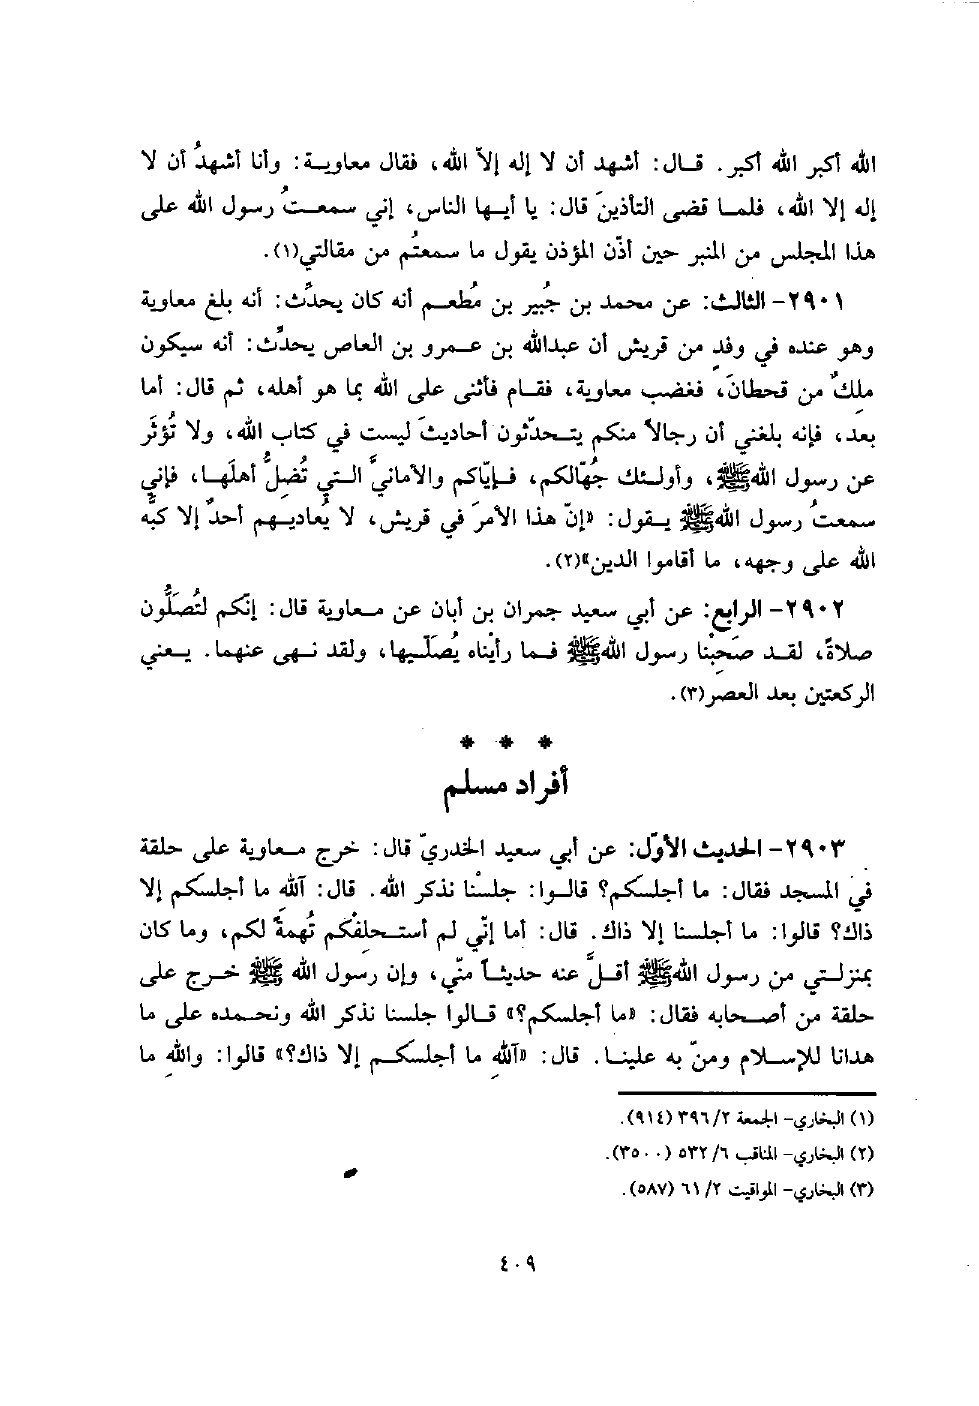 الله أكبر الله أكبر. قال: أشهد أن لا إله إلاّ الله، فقال معاوية: وأنا أشهدُ أن لا
إله إلا الله، فلما قضى التأذينَ قال: يا أيها الناس، إني سمعتُ رسول الله على
هذا المجلس من المنبر حين أذّن المؤذن يقول ما سمعتُم من مقالتي(١).
٢٩٠١- الثالث: عن محمد بن جُبير بن مُطعم أنه كان يحدِّث: أنه بلغ معاوية
وهو عنده في وفدٍ من قريش أن عبدالله بن عمرو بن العاص يحدِّث: أنه سيكون
ملكٌ من قحطانَ، فغضب معاوية، فقام فأثنى على الله بما هو أهله، ثم قال: أما
بعد، فإنه بلغني أن رجالاً منكم يتحدّثون أحاديثَ ليست في كتاب الله، ولا تُؤثَر
عن رسول الله ﷺ، وأولئك جُهّالكم، فإيّاكم والأمانيَّ التي تُضِلُّ أهلَها، فإني
سمعتُ رسول الله ﷺ يقول: «إنّ هذا الأمرَ في قريش، لا يُعاديهم أحدٌ إلا كبَّه
الله على وجهه، ما أقاموا الدين»(٢).
٢٩٠٢- الرابع: عن أبي سعيد حمران بن أبان عن معاوية قال: إنّكم لتُصَلُّون
صلاةً، لقد صَحِبْنا رسول الله ﷺ فما رأيْناه يُصَلّيها، ولقد نهى عنهما. يعني
الركعتين بعد العصر(٣).
* * *
أفراد مسلم
٢٩٠٣- الحديث الأوّل: عن أبي سعيد الخدريّ قال: خرج معاوية على حلقة
في المسجد فقال: ما أجلسكم؟ قالوا: جلسْنا نذكر الله. قال: آللهِ ما أجلسكم إلا
ذاك؟ قالوا: ما أجلسنا إلا ذاك. قال: أما إنّي لم أستحلفْكم تُهمةً لكم، وما كان
بمنزلتي من رسول الله ﷺ أقلَّ عنه حديثاً منّي، وإن رسول الله ﷺ خرج على
حلقة من أصحابه فقال: «ما أجلسكم؟» قالوا جلسنا نذكر الله ونحمده على ما
هدانا للإسلام ومنّ به علينا. قال: «آللهِ ما أجلسكم إلا ذاك؟» قالوا: واللهِ ما
(١) البخاري- الجمعة ٢/ ٣٩٦ (٩١٤).
(٢) البخاري- المناقب ٦/ ٥٣٢ (٣٥٠٠).
(٣) البخاري- المواقيت ٢/ ٦١ (٥٨٧).
٤٠٩